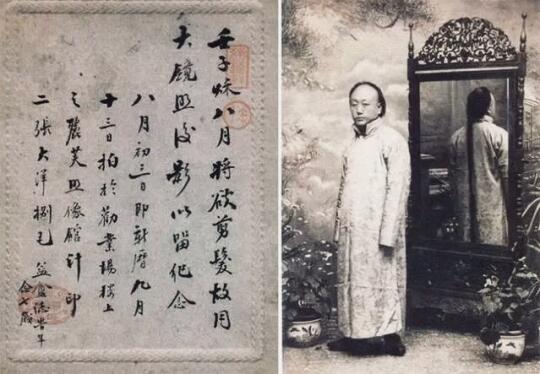 壬子秋八月將欲剪髮故用
大鏡照後影以留紀念
八月初三日即新曆九月
十三日拍於勸業場樓上
之麗芙照像館計印
二張大洋捌毛